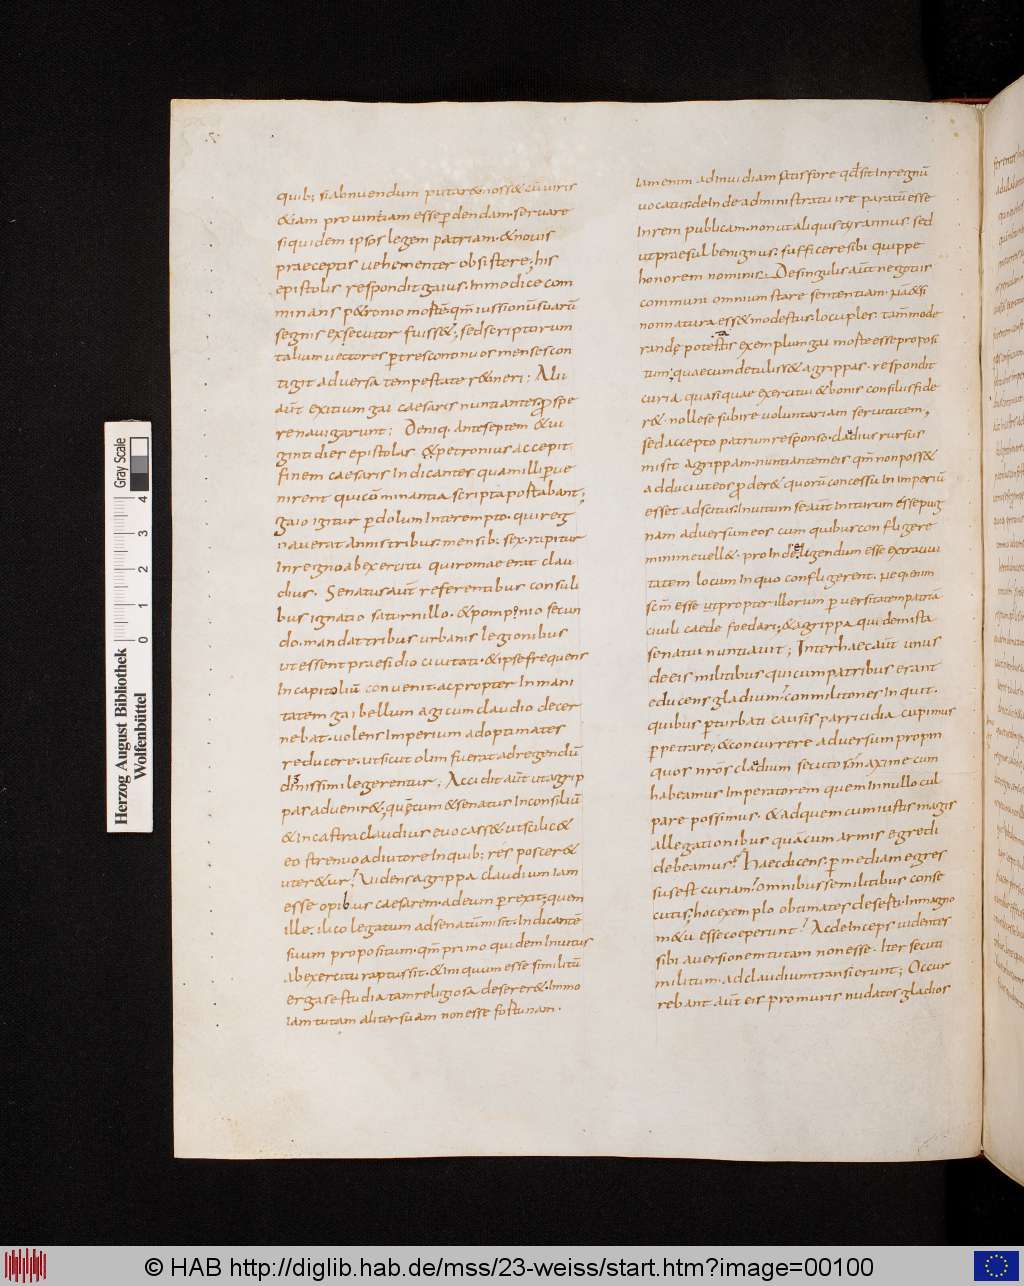 quib; si abnuendum putar& noss& cū uiris
& iam prouintiam esse perdendam. seruare
siquidem ipsos legem patriam. & nouis
praeceptis uehementer obsistere; his
epistolis respondit gaius. Inmodice com
minans p&ronio mortē. qm̄ iussionū suarū
segnis exsecutor fuiss&; sed scriptorum
talium uectores per tres continuos menses con
tigit aduersa tempestate r&ineri; Alii
aūt exitium gai caesaris nuntiantes prospe
re nauigarunt; Deniq. ante septem & ui
ginti dies epistolas & petronius accepit
finem caesaris Indicantes quam illi perue
nirent qui cōminantia scripta portabant;
gaio igitur per dolum Interempto. qui reg
nauerat annis tribus. mensib; sex. rapitur
In regno ab exercitu qui romae erat clau
dius. Senatus aūt referentibus consuli
bus ignatio saturnillo. & pomponio secun
do. mandat tribus urbanis legionibus
ut essent praesidio ciuitati. & ipse frequens
In capitoliū conuenit. ac propter Inmani
tatem gai bellum agi cum claudio decer
nebat. uolens Imperium ad optimates
reducere. ut sicut olim fuerat ad regendū
dignissimi legerentur; Accidit aūt ut agrip
pas aduenir&. quem cum & senatus In consiliū
& In castra claudius euocass& ut scilic&
eo strenuo adiutore In quib; res poscer&
uter&ur. Uidens agrippa claudium iam
esse opibus caesarem. ad eum perrexit; quem
ille. ilico legatum ad senatū misit. Indicantē
suum propositum. qm̄ primo quidem Inuitus
ab exercitu raptus sit. & iniquum esse similitū
erga se studia tam religiosa deserer&. Immo
iam tutam aliter suam non esse fortunam.
iam enim ad inuidiam satis fore qd sit In regnū
uocatus. deinde administratu ire paratū esse
In rem publicam. non ut aliquis tyrannus. sed
ut praesul benignus. sufficere sibi quippe
honorem nominis. De singulis aūt negotiis
communi omnium stare sententiam.
non natura ess& modestus. locuples. tam mode
rande potestatis exemplum gai morte esse proposi
tum; quae cum detuliss& agrippas. respondit
curia quasi quae exercitui & bonis consiliis fide
r&. nolle se subire uoluntariam seruitutem;
sed accepto patrum responso. claudius rursus
misit agrippam. nuntiantem eis qm̄ non poss&
adduci ut eos proder& quorū concessu In imperiū
esset adscitus. Inuitum se aūt Initurum esse pug
nam aduersum eos cum quibus confligere
minime uell&. proinde eligendum esse extra ciui
tatem locum In quo confligerent. neq enim
scm̄ esse ut propter illorum peruersitatem patria
ciuili caede foedari; & agrippa quidem ista
senatui nuntiauit; Inter haec aūt unus
de eis militibus qui cum patribus erant
educens gladium. conmilitones Inquit.
quibus perturbati causis parricidia cupimus
perpetrare; & concurrere aduersum propin
quos nr̄os claudium secuto
habeamus Imperatorem quem In nullo cul
pare possimus. & ad quem cum iustis magis
allegationibus quā cum armis egredi
debeamus? Haec dicens. per mediam egres
sus est curiam. omnibus se militibus conse
cutis; hoc exemplo obtimates deserti. In magno
m&u esse coeperunt. Ac deinceps uidentes
sibi auersionem tutam non esse. Iter secuti
militum. ad claudium transierunt; Occur
rebant aūt eis pro muris nudatos gladios
Herzog August Bibliothek
Wolfenbüttel
0 1 2 3 4
Gray Scale
© HAB http://diglib.hab.de/mss/23-weiss/start.htm?image=00100